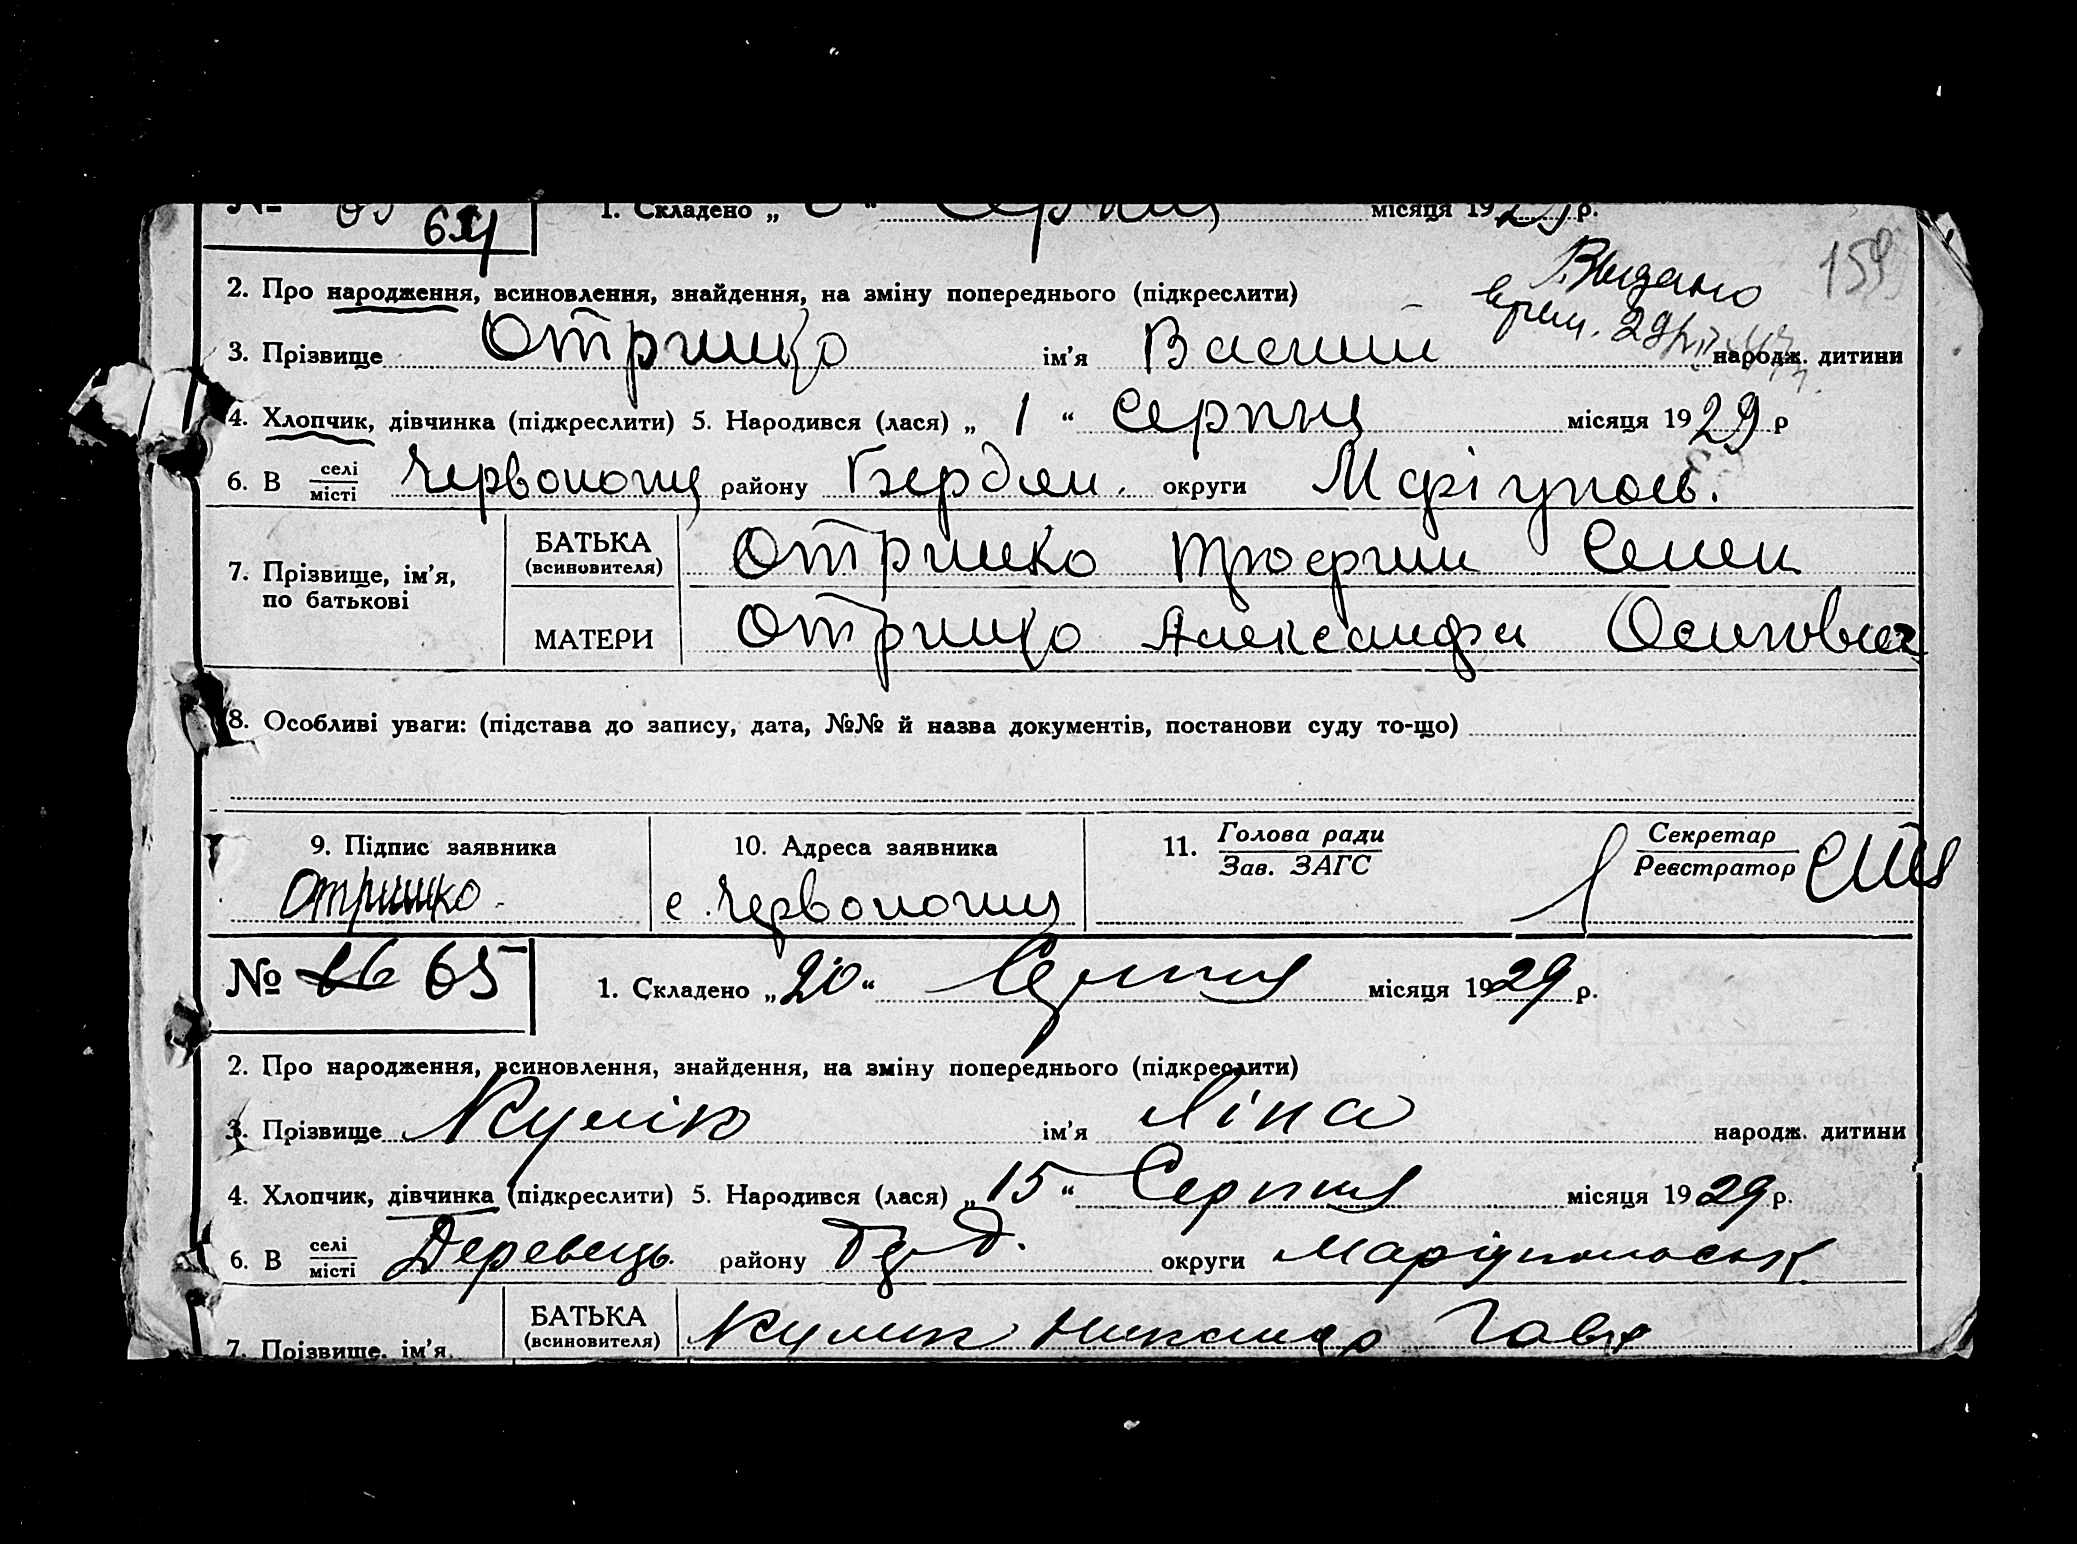 № 64 1. Складено „ “ Серпня місяця 1929 р.
159
2. Про народження, всиновлення, знайдення, на зміну попереднього (підкреслити)
3. Прізвище Отришко ім’я Василий народж. дитини
4. Хлопчик, дівчинка (підкреслити) 5. Народився (лася) „ 1 “ Серпня місяця 1929 р
6. В селі/місті району Бердян. округи Маріуполь.
7. Прізвище, ім’я, по батькові
БАТЬКА (всиновителя) Отришко Семен
МАТЕРИ Отришко Александра Осиповна
8. Особливі уваги: (підстава до запису, дата, №№ й назва документів, постанови суду то-що)
9. Підпис заявника 10. Адреса заявника 11. Голова ради/Зав. ЗАГС Секретар/Реєстратор
Отришко с.
№ 66 65 1. Складено „20“ Серпня місяця 1929 р.
2. Про народження, всиновлення, знайдення, на зміну попереднього (підкреслити)
3. Прізвище Кулік ім’я Ліна народж. дитини
4. Хлопчик, дівчинка (підкреслити) 5. Народився (лася) „15“ Серпня місяця 1929 р.
6. В селі/місті Деревець району округи Маріупольськ
7. Прізвище, ім’я,
БАТЬКА (всиновителя) Кулик